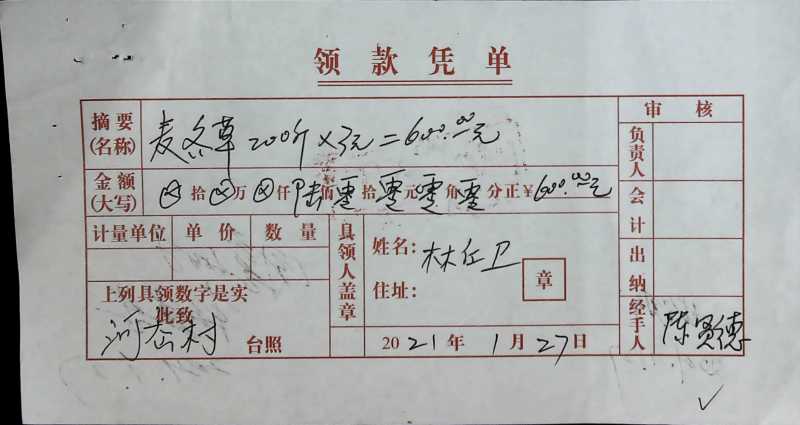 领款凭单
摘要(名称) 麦冬草 200斤×3元=600.00元
审核
金额(大写) ⊗拾⊗万⊗仟陆佰零拾零元零角零分正¥600.00元
负责人
会计
计量单位 单价 数量
具领人盖章
姓名: 林任卫
住址:
章
出纳
上列具领数字是实
此致
河岙村 台照
2021年1月27日
经手人 陈贤德